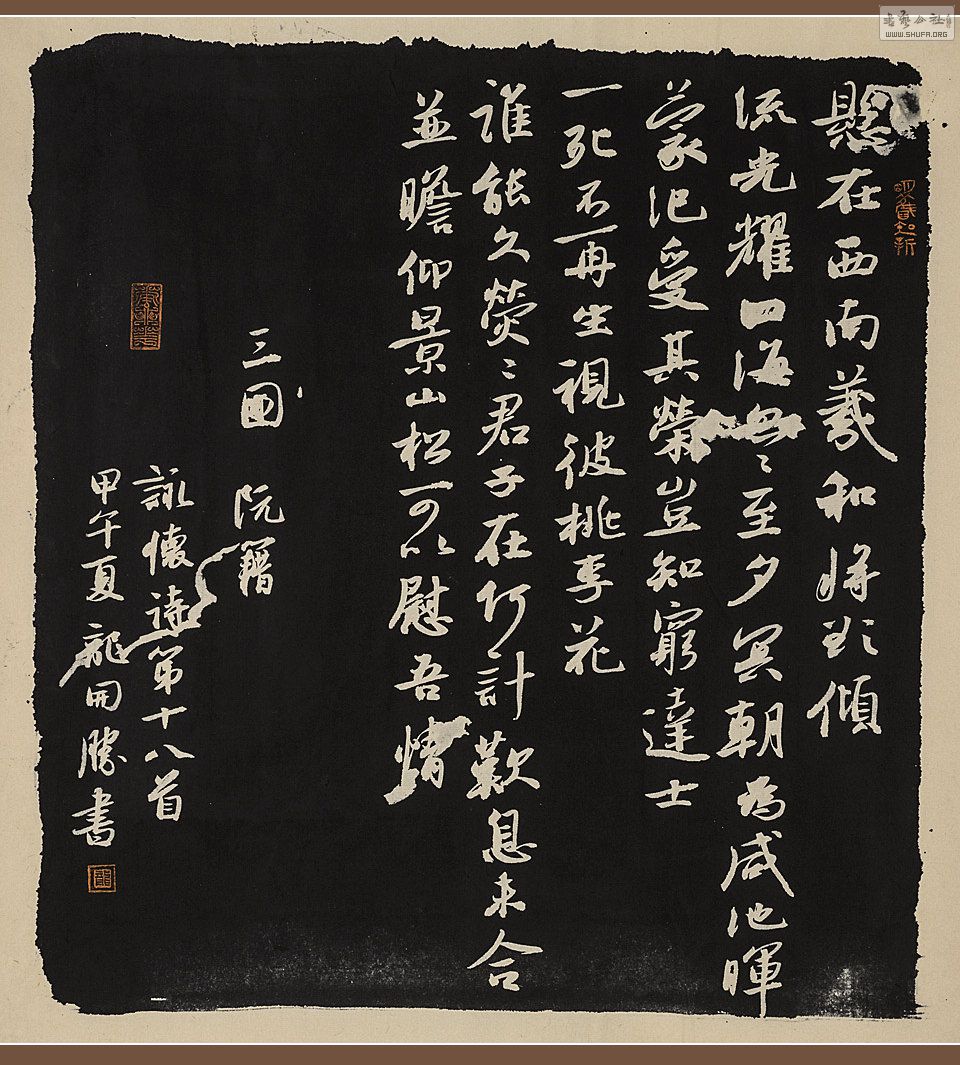 懸在西南羲和將欲傾
流光耀四海忽〻至夕冥朝為咸池暉
蒙汜受其榮豈知窮達士
一死不再生視彼桃李花
誰能久熒〻君子在何計歎息未合
並瞻仰景山松可以慰吾情
三國 阮籍
詠懷詩第十八首
甲午夏 龍開勝書
书艺公社
WWW.SHUFA.ORG